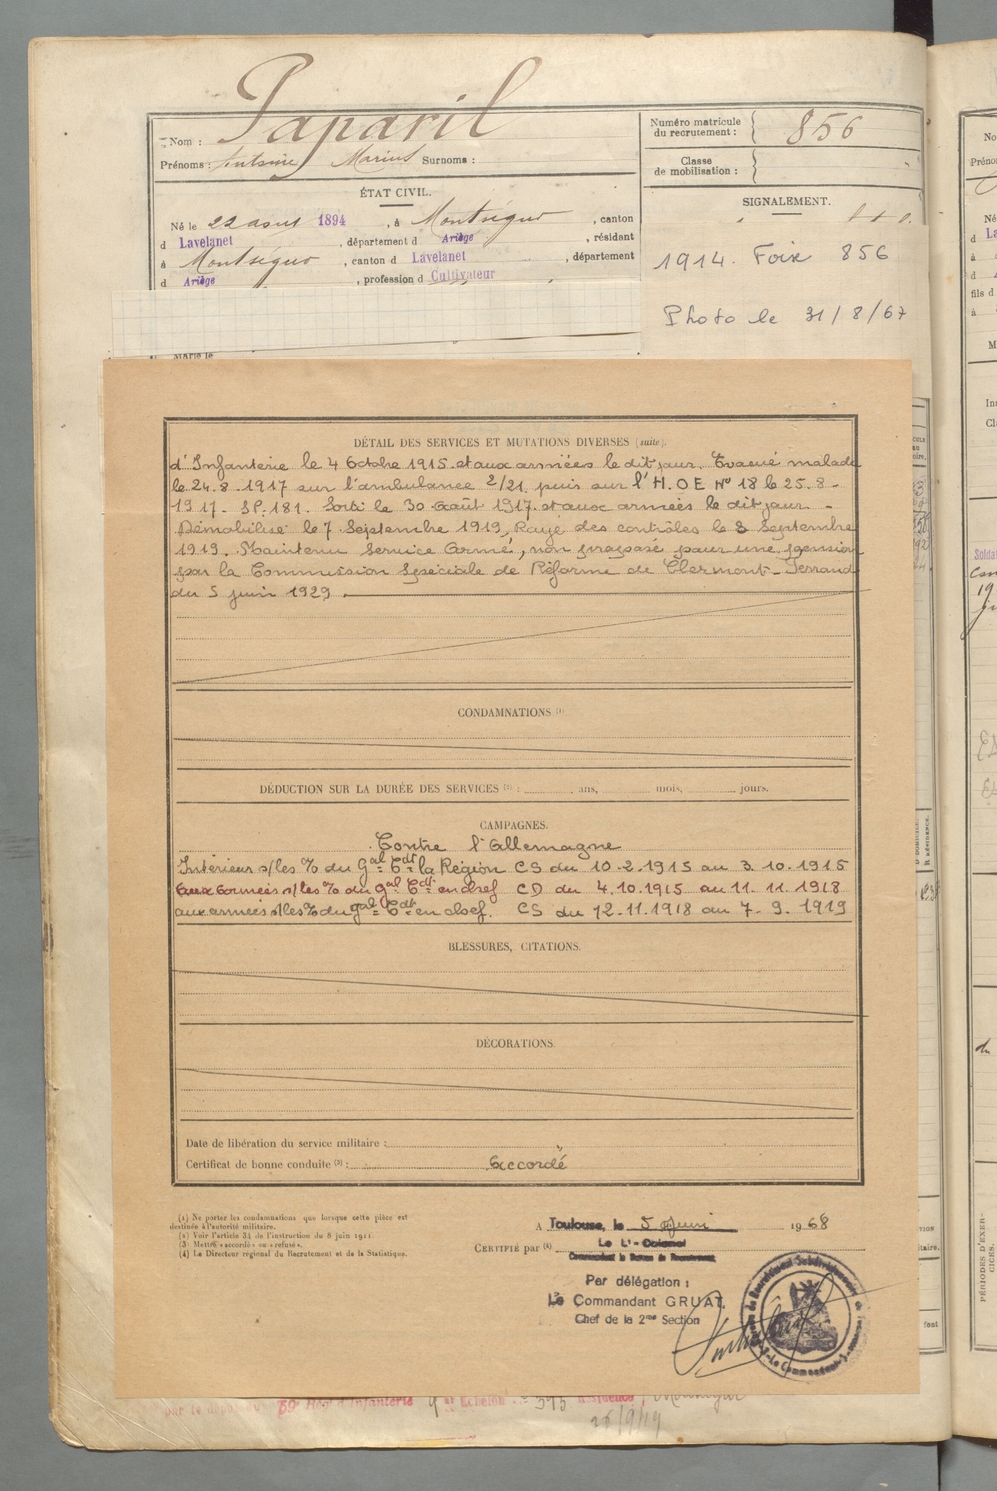 Nom : Paparil
Prénoms : Antoine Marius Surnoms :
Numéro matricule du recrutement : 856
Classe de mobilisation :
ÉTAT CIVIL.
Né le 22 août 1894, à Montségur, canton
d Lavelanet, département d Ariège, résidant
à Montségur, canton d Lavelanet, département
d Ariège, profession d Cultivateur
SIGNALEMENT.
1914. Foix 856
Photo le 31/8/67
Marié le
DÉTAIL DES SERVICES ET MUTATIONS DIVERSES (suite).
d'Infanterie le 4 Octobre 1915 et aux armées le dit jour. Evacué malade
le 24.8.1917 sur l'ambulance 2/21 puis sur l'H.O E N° 18 le 25.8-
1917. SP. 181. Sorti le 30 Août 1917 et aux armées le dit jour -
Démobilisé le 7 Septembre 1919, Rayé des contrôles le 8 Septembre
1919. Maintenu Service Armé, non proposé pour une pension
par la Commission Spéciale de Réforme de Clermont-Ferrand
du 5 juin 1929.
CONDAMNATIONS (1)
DÉDUCTION SUR LA DURÉE DES SERVICES (2) : ans, mois, jours.
CAMPAGNES.
Contre l'Allemagne
Intérieur s/les % du Gal Cdt la Région CS du 10-2-1915 au 3.10.1915
Aux Armées s/les % du gal Cdt en chef CD du 4.10.1915 au 11.11.1918
aux armées s/les % du gal Cdt en chef. CS du 12.11.1918 au 7-9.1919
BLESSURES, CITATIONS.
DÉCORATIONS.
Date de libération du service militaire :
Certificat de bonne conduite (3) : Accordé
(1) Ne porter les condamnations que lorsque cette pièce est
destinée à l'autorité militaire.
(2) Voir l'article 34 de l'instruction du 8 juin 1911.
(3) Mettre « accordé » ou « refusé ».
(4) Le Directeur régional du Recrutement et de la Statistique.
A Toulouse, le 5 Juin 1968
CERTIFIÉ par (4) Le Lt-Colonel
Commandant le Bureau de Recrutement,
Par délégation :
Le Commandant GRUAT,
Chef de la 2me Section
59e Régt d'Infanterie
26/9/19